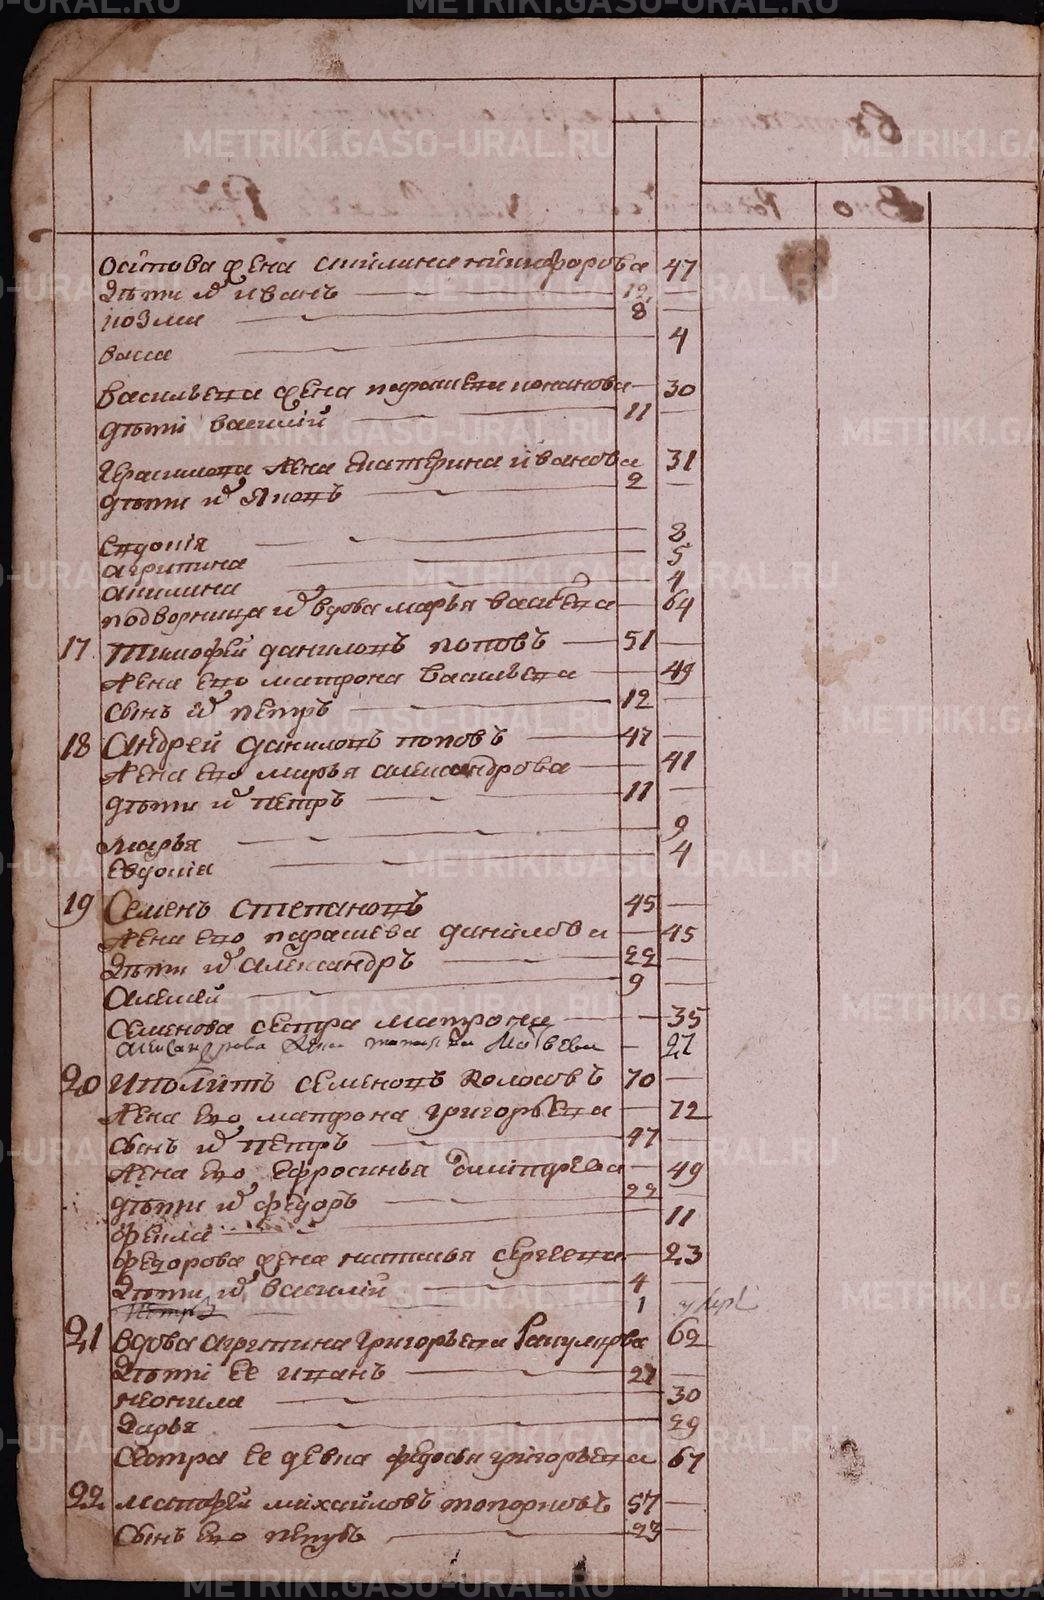 METRIKI.GASO-URAL.RU
Осипова жена акилина никифорова 47
Дѣти их иванъ 12
козма 8
васса 4
васильева жена парасκева иванова 30
дѣти василий 11
Герасимова жена Екатерина иванова 31
дѣти их Яковъ 2
Евдокія 8
агрипина 5
акилина 4
подворница их вдова марья васильева 64
17 Тимофей даниловъ поповъ 51
Жена ево матрона васильева 49
сынъ их петръ 12
18 Андрей даниловъ поповъ 47
Жена ево марья александрова 41
дѣти их петръ 11
марья 9
Евдокіа 4
19 Семенъ степановъ 45
Жена ево парасκева данилова 45
Дѣти их александръ 22
Алексей 9
Семенова сестра матрона 35
Александрова жена 27
20 Иполитъ семеновъ колосовъ 70
Жена ево матрона григорьева 72
сынъ их петръ 47
Жена ево ефросинья дмитрева 49
дѣти их федоръ 22
фекла 11
федорова жена наталья сергеева 23
Дѣти их василий 4
петръ 1
21 вдова агрипина григорьева 62
Дѣти ее иванъ 27
неонила 30
Дарья 29
Сестра ее девка федосья григорьева 67
22 матфей михаиловъ топорковъ 57
Сынъ ево 23